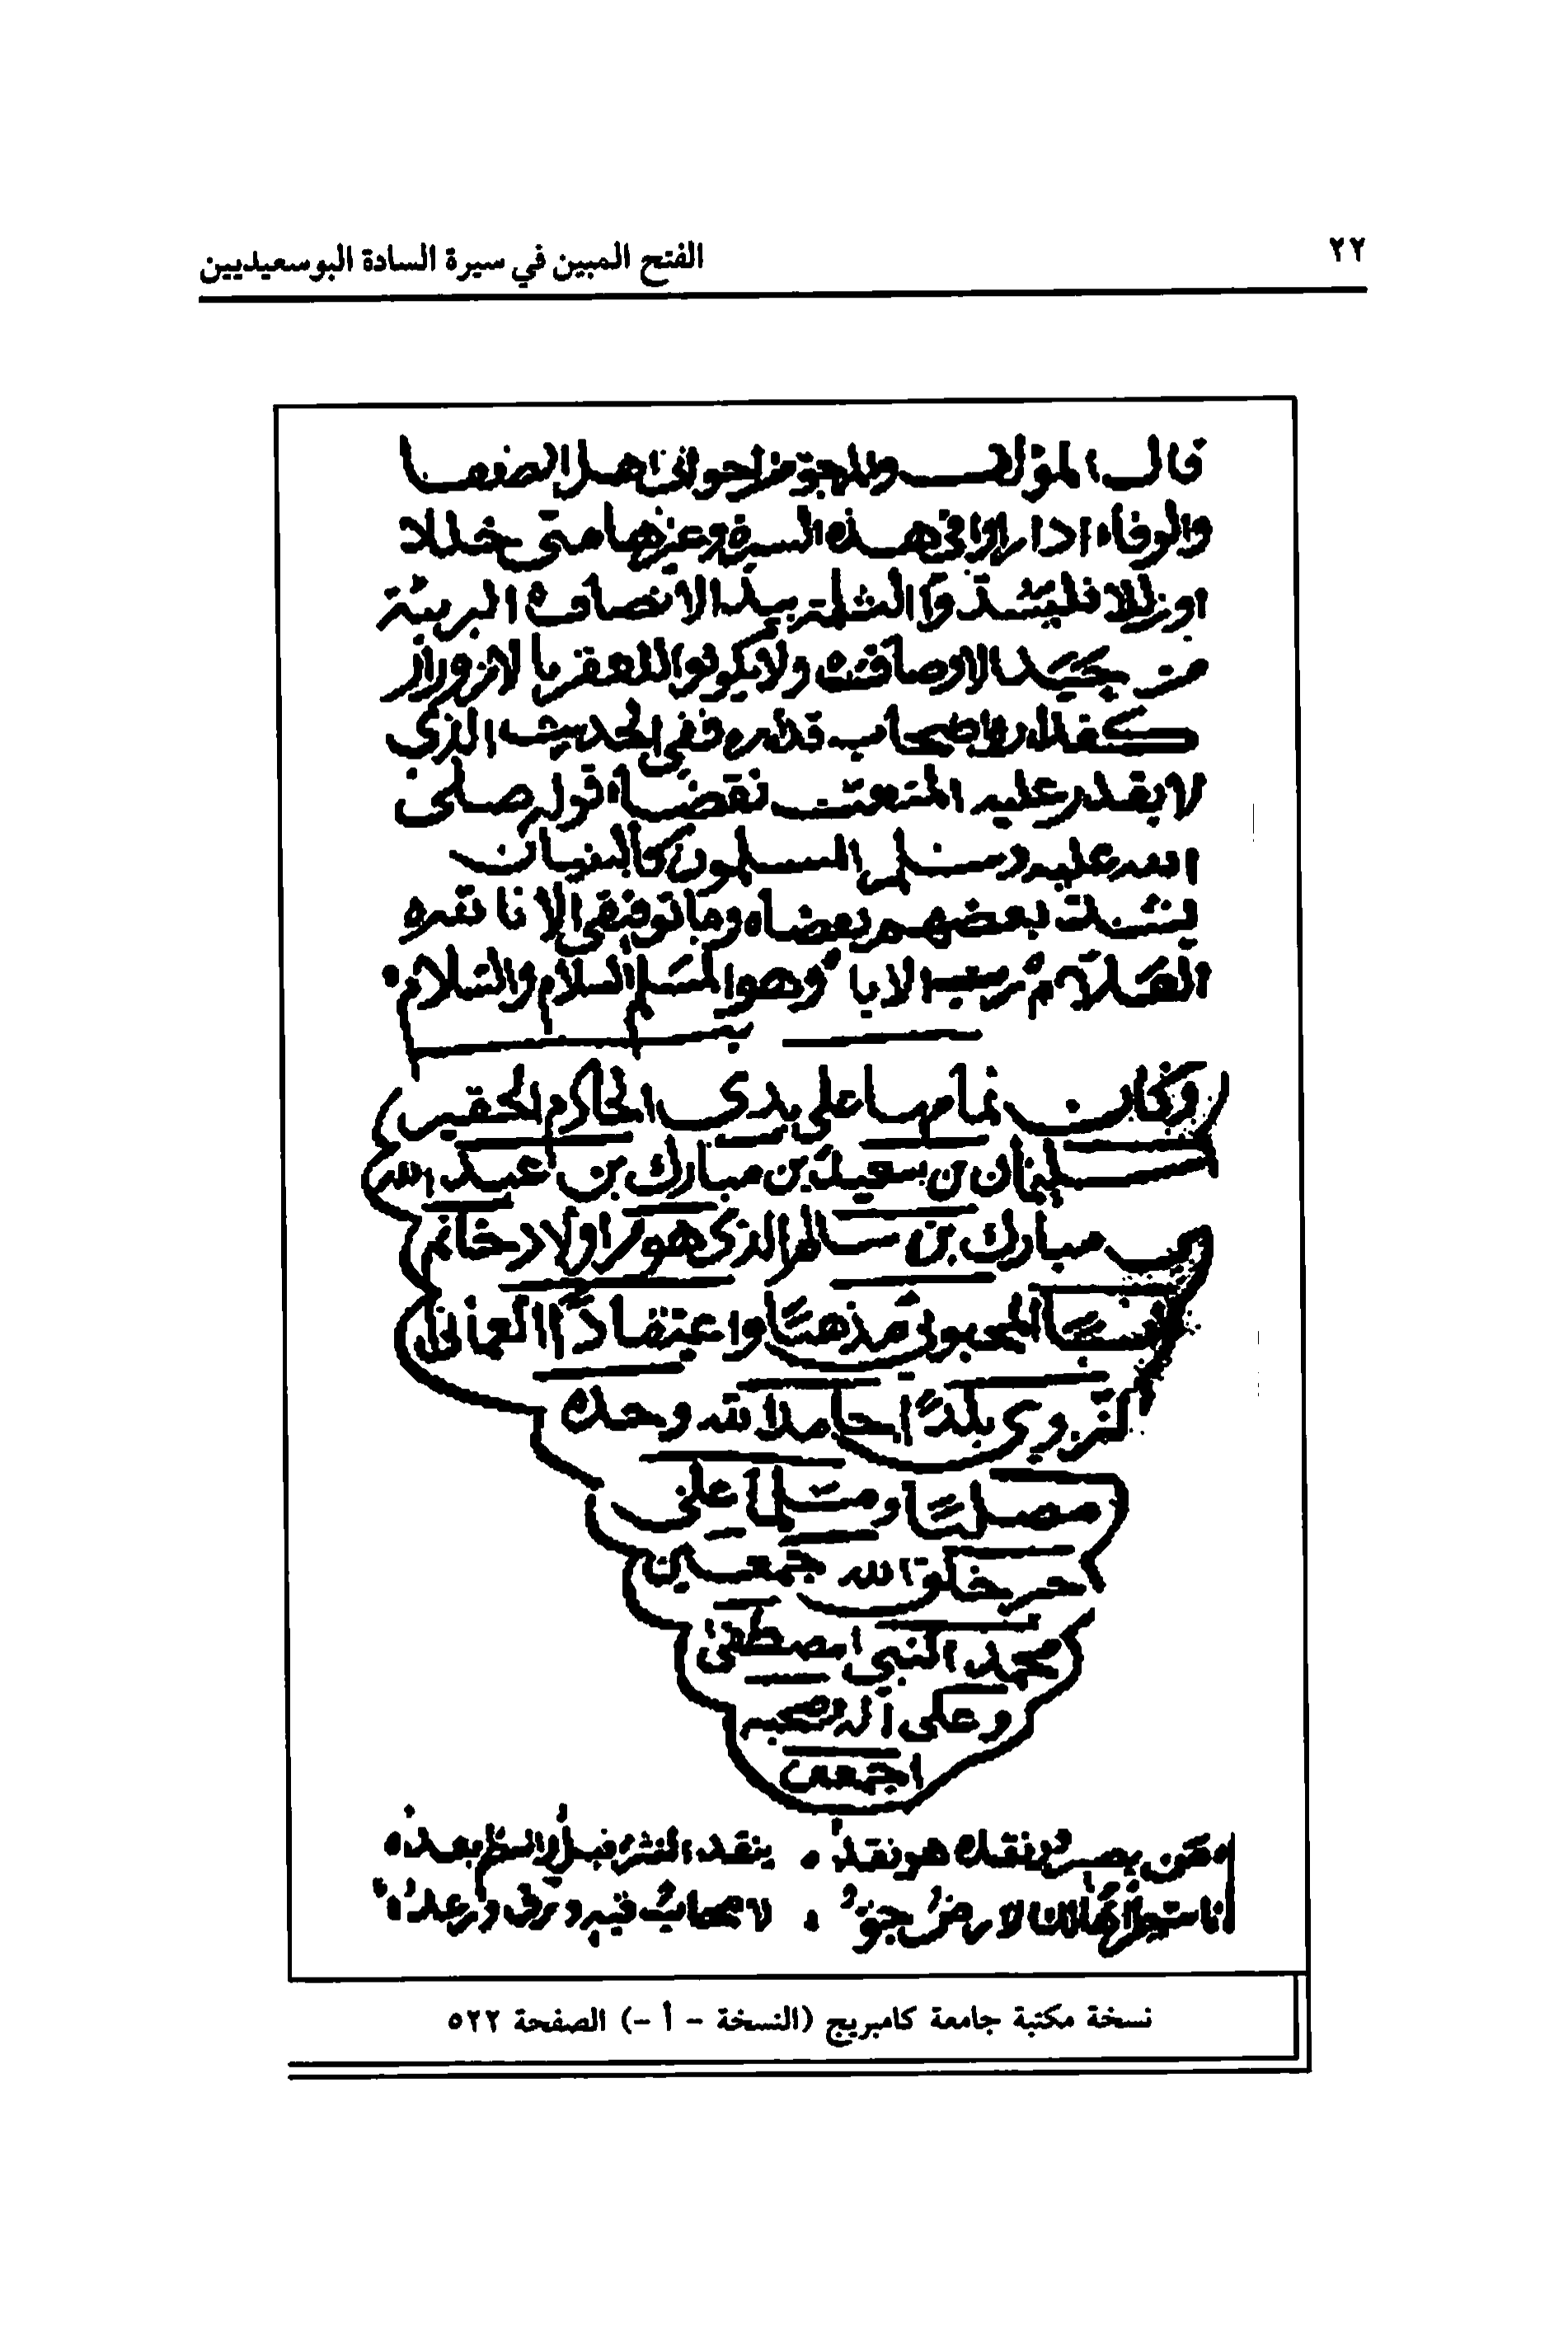 ٢٢
الفتح المبين في سيرة السادة البوسعيديين
قال المؤلف والمرجو من اخواني اهل الصفا
والوفاء اذا راوا في هذه السيرة وغيرها متى خللا
او زللا فليشدوا الثلمة بيد الانصاف البريئة
من الاوصاف ولا يكونوا للعقر بالازورار
اصحاب قذره ففي الحديث الذي
لا يقدر عليه المتعنت نقضا قوله صلى
الله عليه وسلم المسلمون كالبنيان
يشد بعضهم بعضا وما توفيقي الا بالله
وهو المسلم السلام والسلام
وكان تمامها على يدي الخادم الحقير
سليمان بن سعيد بن مبارك بن عبد الله
بن مبارك بن سالم الذي هو من اولاد خاتم
نسبا المحبوبي مذهبا واعتقادا العماني
النزوي بلدا حامدا لله وحده
مصليا ومسلما على
خير خلق الله جمعين
محمد النبي مصطفى
وعلى آله وصحبه
اجمعين
نقده هو نقد ينقد النثر قبل
لا سحاب فيه وبرق ورعد
نسخة مكتبة جامعة كامبريج (النسخة - أ -) الصفحة ٥٢٢